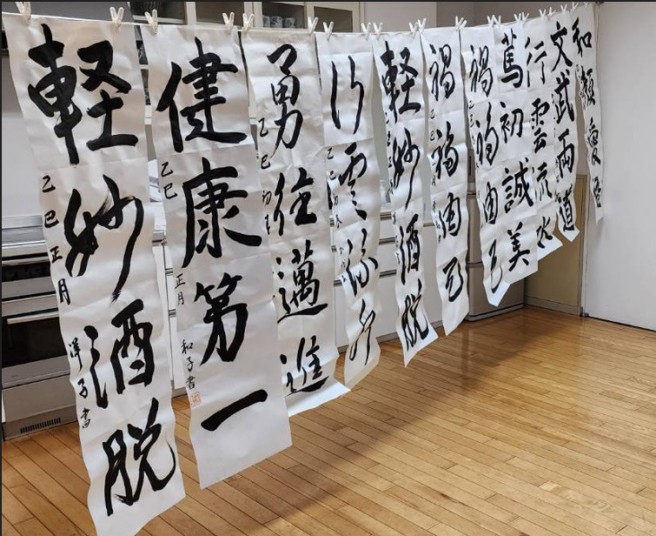 軽妙洒脱
乙巳正月
健康第一
乙巳
正月
和子書
勇往邁進
乙巳
行雲流水
軽妙洒脱
禍福由己
禍福由己
篤初誠美
行雲流水
文武両道
和顔愛語